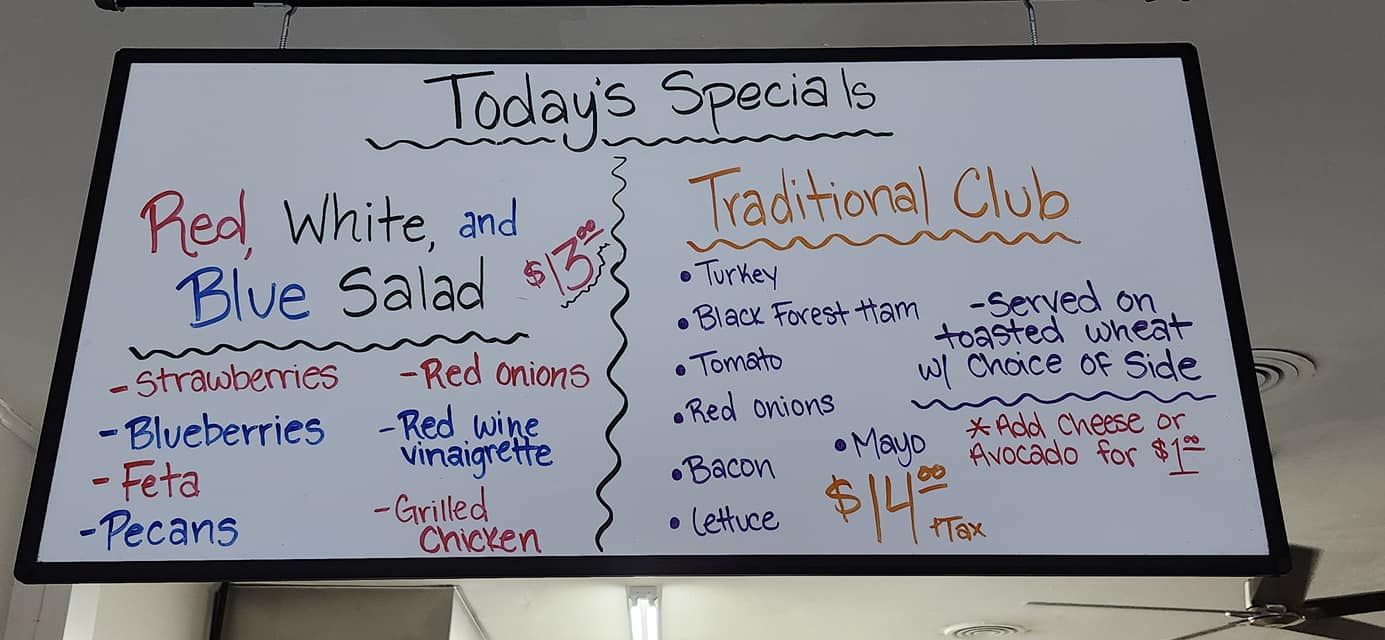 Today's Specials
Red, White, and
Blue Salad
$13.00
- Strawberries
- Blueberries
- Feta
- Pecans
- Red onions
- Red wine
vinaigrette
- Grilled
Chicken
Traditional Club
• Turkey
• Black Forest Ham
• Tomato
• Red onions
• Bacon
• Lettuce
• Mayo
$14.00
+Tax
- Served on
toasted wheat
w/ Choice of Side
* Add Cheese or
Avocado for $1.00